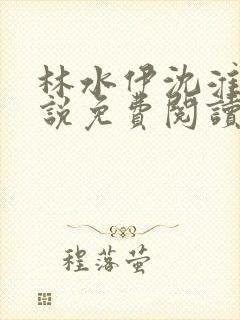 林水伊沈淮
說免費閱讀
程落萤